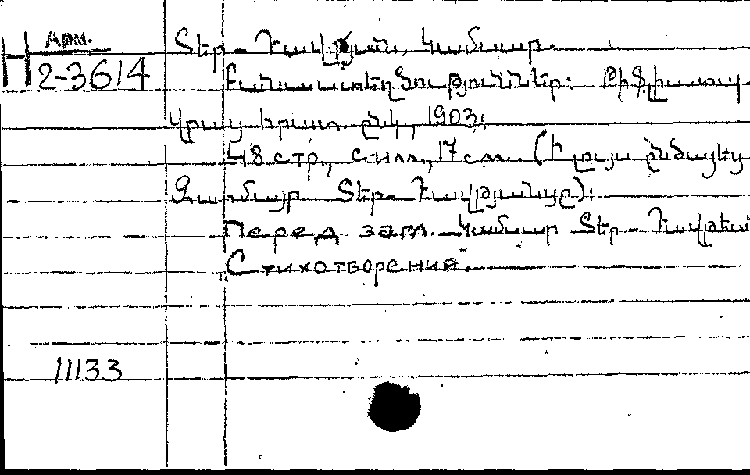 Арм.
H 2-3614
Տեր-Դավթյան, Կամսար.
Բանաստեղծություններ: Թիֆլիս տպ
Վրաց հրատ. ընկ, 1903:
48 стр., с илл., 17 см. (Ի լույս ընծայեց
Զարմայր Տեր-Դավթյանցը):
Перед загл. Կամսար Տեր-Դավթեան
„Стихотворения".
11133